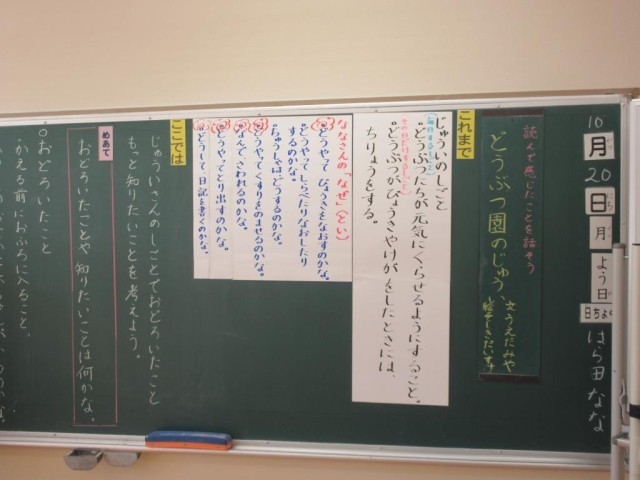 10
月
20
日
月
よう日
日ちょく
はら田 なな
読んで感じたことを話そう
どうぶつ園のじゅうい
文 うえだ みや
これまで
じゅういのしごと
○どうぶつたちが元気にくらせるようにすること。
○どうぶつがびょうきやけがをしたときには、
ちりょうをする。
ななさんの「なぜ」(とい)
○どうやってびょうきをなおすのかな。
○どうやってしらべたりなおしたり
するのかな。
○どうやってくすりをのませるのかな。
○なんで、さわれるのかな。
○どうやってとり出すのかな。
○どうして、日記を書くのかな。
ここでは
じゅういさんのしごとでおどろいたこと
もっと知りたいことを考えよう。
めあて
おどろいたことや知りたいことは何かな。
○おどろいたこと
かえる前におふろに入ること。